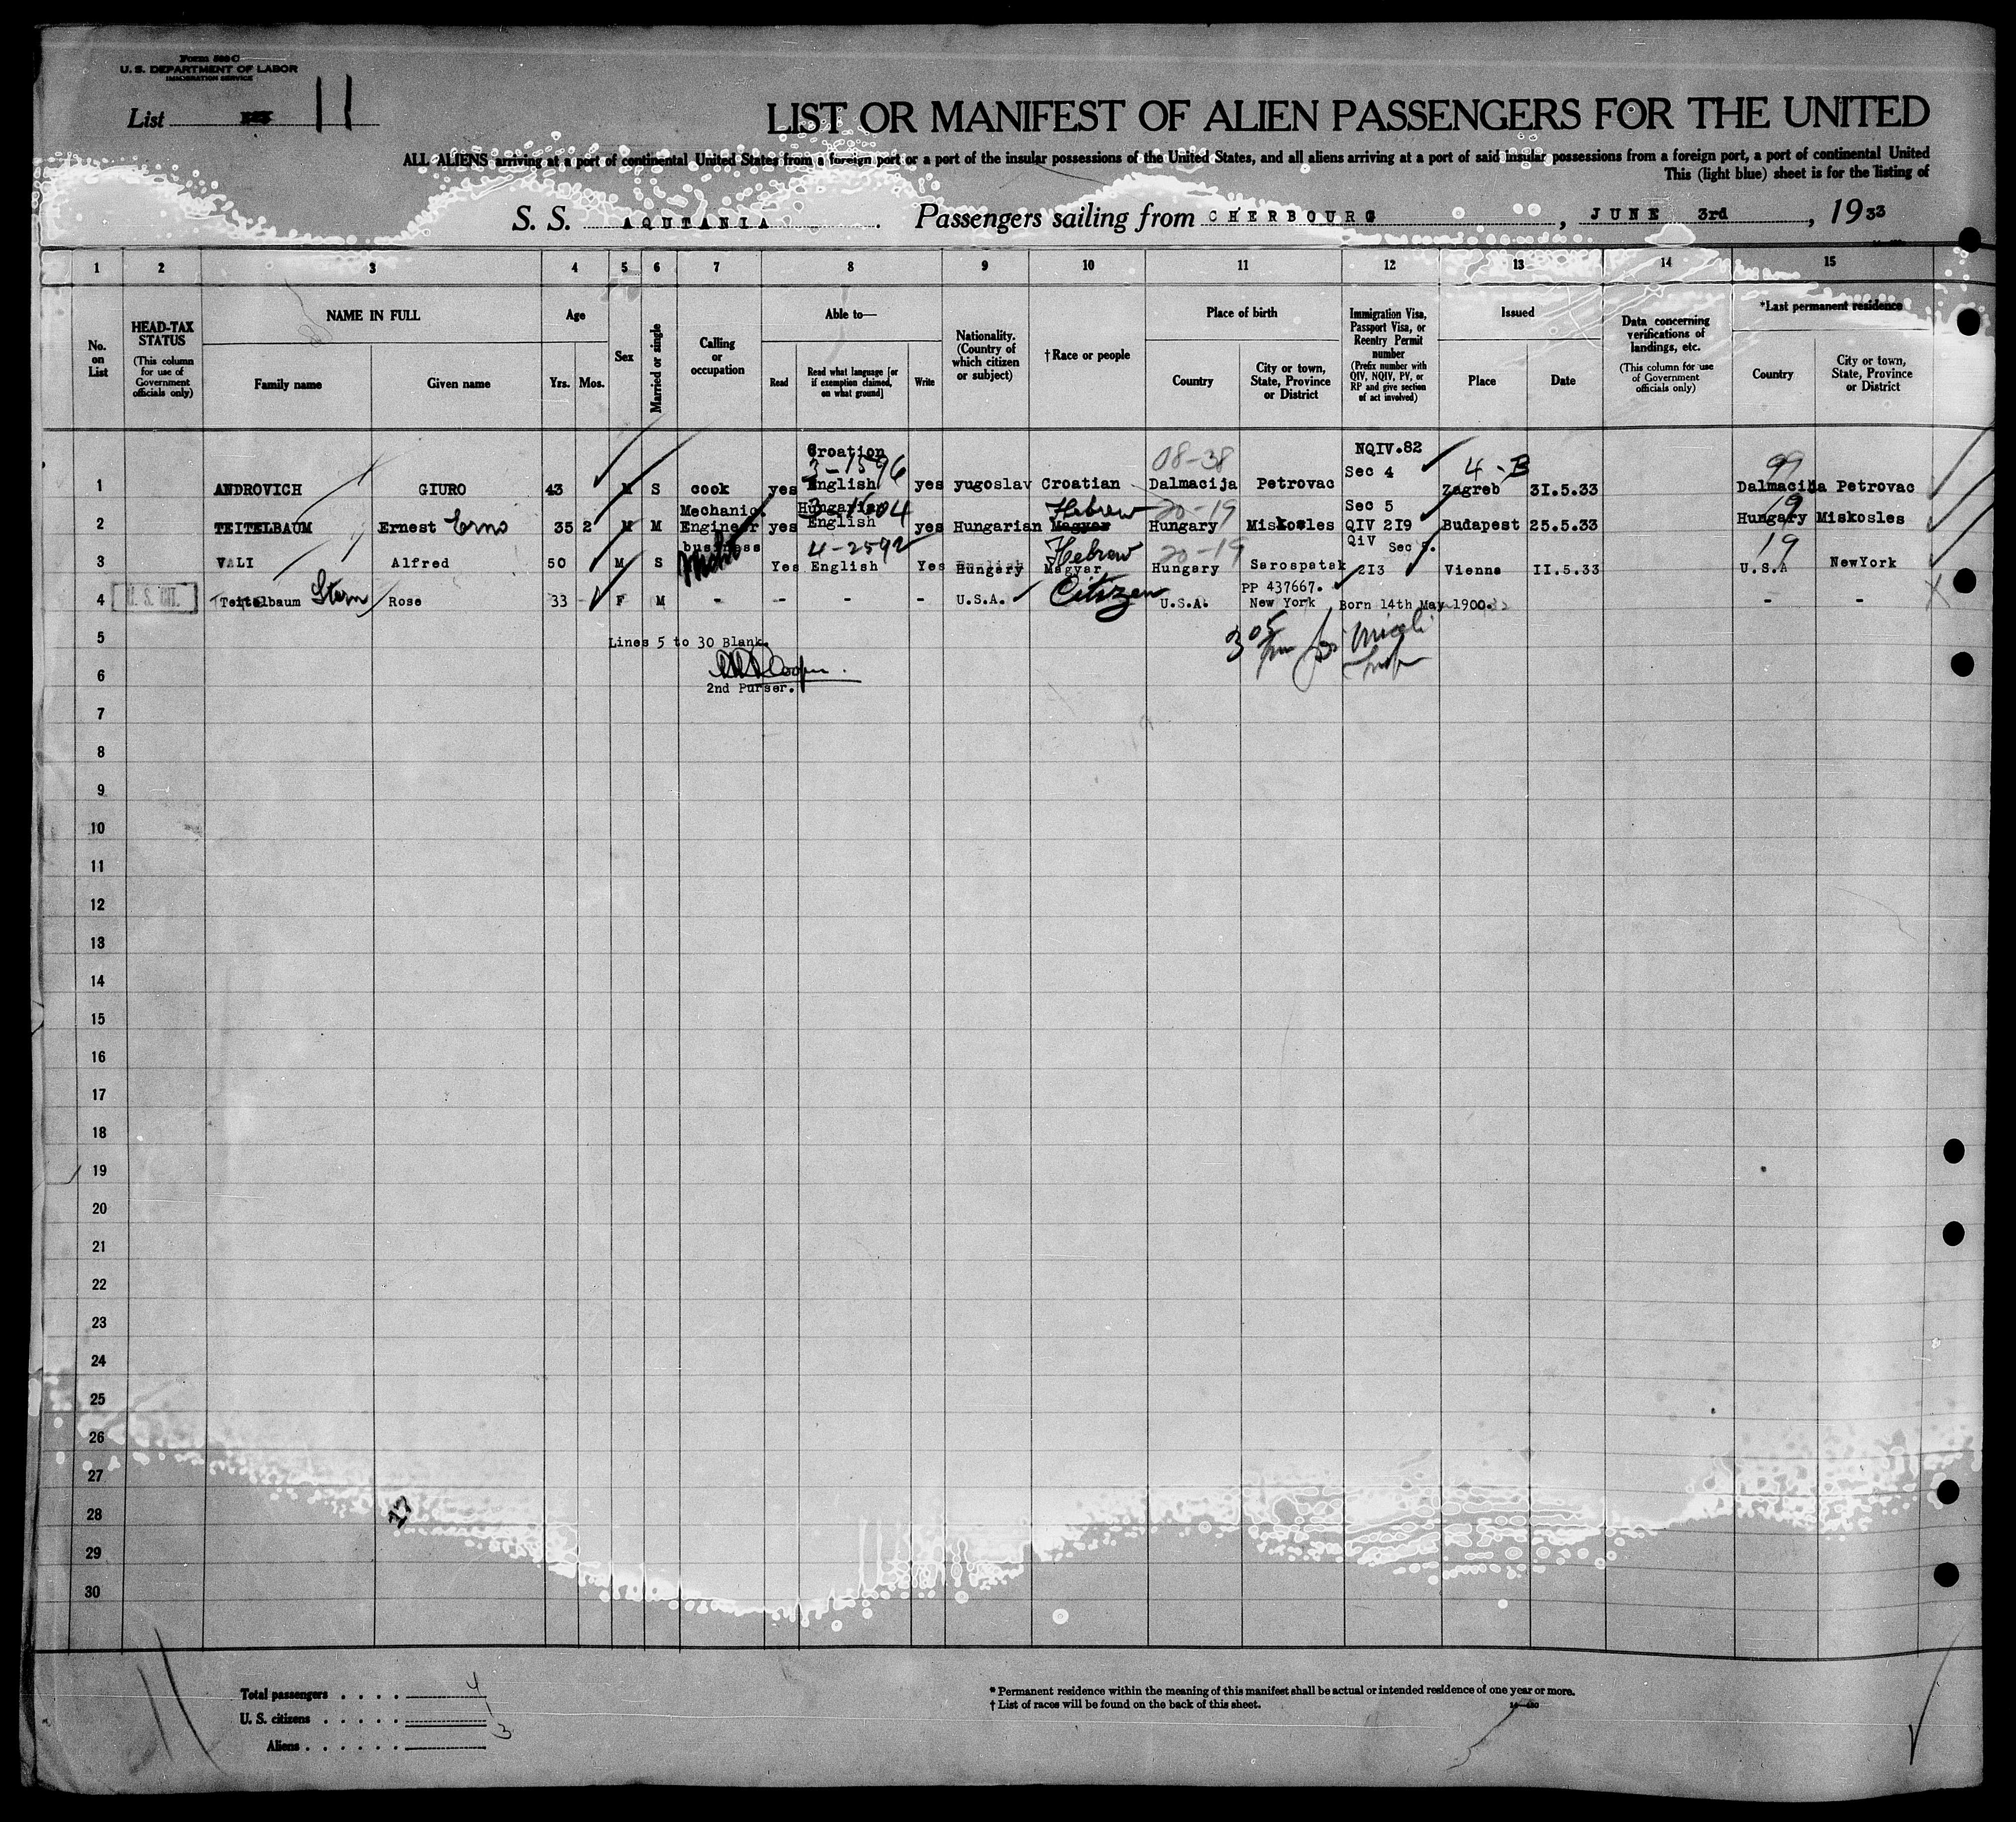 Form 500 C
U. S. DEPARTMENT OF LABOR
IMMIGRATION SERVICE
List 11
LIST OR MANIFEST OF ALIEN PASSENGERS FOR THE UNITED
ALL ALIENS arriving at a port of continental United States from a foreign port or a port of the insular possessions of the United States, and all aliens arriving at a port of said insular possessions from a foreign port, a port of continental United
This (light blue) sheet is for the listing of
S. S. AQUTANIA . Passengers sailing from CHERBOURG , JUNE 3rd , 1933
1 2 3 4 5 6 7 8 9 10 11 12 13 14 15
No. on List
HEAD-TAX STATUS
(This column for use of Government officials only)
NAME IN FULL
Family name
Given name
Age
Yrs. Mos.
Sex
Married or single
Calling or occupation
Able to—
Read
Read what language [or if exemption claimed, on what ground]
Write
Nationality. (Country of which citizen or subject)
†Race or people
Place of birth
Country
City or town, State, Province or District
Immigration Visa, Passport Visa, or Reentry Permit number
(Prefix number with QIV, NQIV, PV, or RP and give section of act involved)
Issued
Place
Date
Data concerning verifications of landings, etc.
(This column for use of Government officials only)
*Last permanent residence
Country
City or town, State, Province or District
Croation 08-38 NQIV.82
3-1596 Sec 4 4-B 99
1 ANDROVICH GIURO 43 M S cook yes English yes yugoslav Croatian Dalmacija Petrovac Zagreb 31.5.33 Dalmacija Petrovac
Mechanic. Hungarian 3-1604 Hebrew 20-19 Sec 5 19
2 TEITELBAUM Ernest Erno 35 2 M M Engineer yes English yes Hungarian Magyar Hungary Miskosles QIV 2I9 Budapest 25.5.33 Hungary Miskosles
business 4-2592 Hebrew 20-19 QiV Sec 5. 19
3 VALI Alfred 50 M S Yes English Yes Hungary Magyar Hungary Sarospatak 2I3 Vienna II.5.33 U.S.A NewYork
PP 437667.
4 Teitelbaum Stern Rose 33 - F M - - - - U.S.A. Citizen U.S.A. New York Born 14th May 1900. - -
5 Lines 5 to 30 Blank.
6
2nd Purser.
7
8
9
10
11
12
13
14
15
16
17
18
19
20
21
22
23
24
25
26
27
28
29
30
Total passengers . . . . 4
U. S. citizens . . . . . 1
Aliens . . . . . . 3
* Permanent residence within the meaning of this manifest shall be actual or intended residence of one year or more.
† List of races will be found on the back of this sheet.